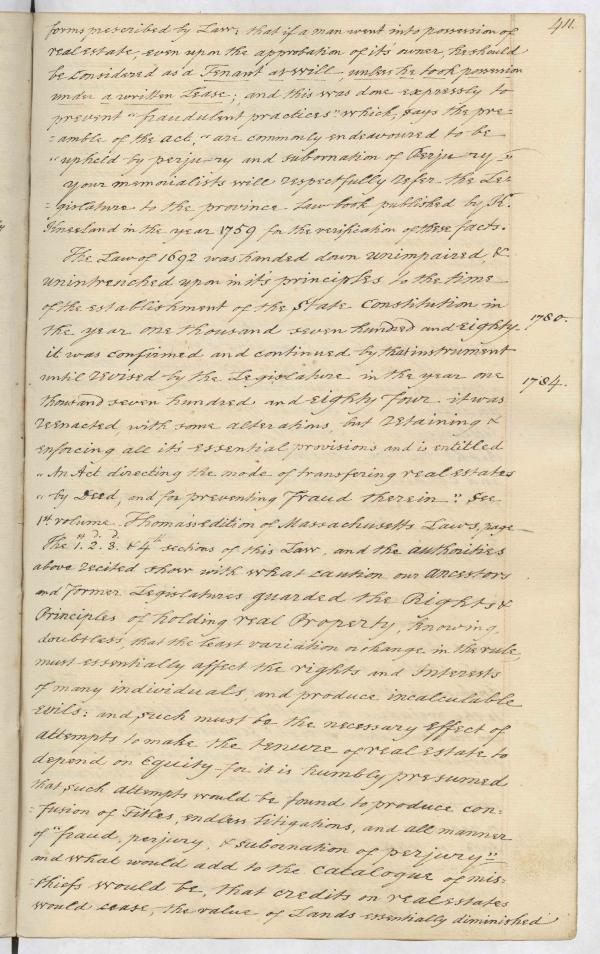 411.
forms prescribed by Law; that if a man went into possession of
real estate, even upon the approbation of it's owner, he should
be considared as a Tenant at will, unless he took possession
under a written Lease; and this was done expressly to
prevent "fraudulent practices" which, says the pre=
=amble of the act, "are commonly endeavoured to be
"upheld by perju-ry and subornation of Perju-ry"
your memorialists will respectfully refer the Le=
=gislature to the province Law book published by K.
Kneeland in the year 1759 for the verification of these facts.
The Law of 1692 was handed down unimpaired, &
unintrenched upon in it's principles to the time
of the establishment of the State Constitution in
the year one thousand seven hundred and eighty 1780.
it was confirmed and continued by that instrument
until revised by the Legislature in the year one 1784.
thousand seven hundred and eighty four it was
reenacted, with some alterations, but retaining &
enforcing all it's essential provisions and is entitled
"An Act directing the mode of transfering real estates
"by Deed, and for preventing Fraud therein". See
1st volume Thomas's edition of Massachusetts Laws, page
The 1st 2d 3d & 4th sections of this Law, and the authorities
above recited show with what caution our ancestors
and former Legislatures guarded the Rights &
Principles of holding real Property, knowing,
doubtless, that the least variation or change in the rule,
must essentially affect the rights and Interests
of many individuals, and produce incalculable
evils: and such must be the necessary effect of
attempts to make the tenure of real estate to
depend on Equity for it is humbly presumed
that such attempts would be found to produce con=
=fusion of Titles, endless litigations, and all manner
of "fraud, perjury, & subornation of perjury"
and what would add to the catalogue of mis=
=chiefs would be, that credits on real estates
would cease, the value of Lands essentially diminished